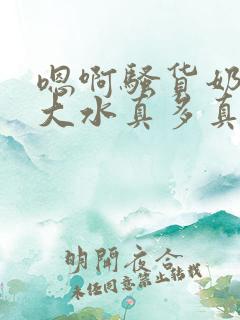 嗯啊骚货奶
大水真多真
明開夜合
未经同意禁止转载